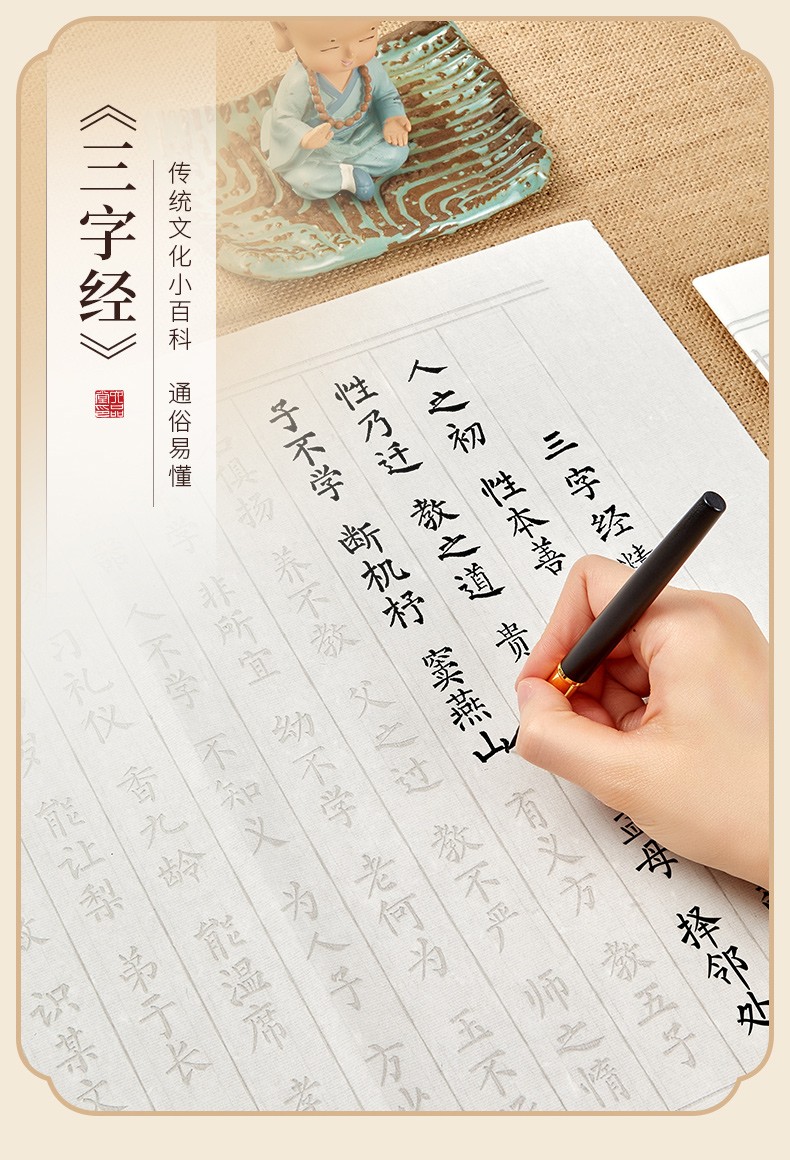 《三字经》
传统文化小百科 通俗易懂
三字经
人之初 性本善
性乃迁 教之道 贵 母 择邻处
子不学 断机杼 窦燕山 有义方 教五子
俱扬 养不教 父之过 教不严 师之惰
非所宜 幼不学 老何为 玉不
人不学 不知义 为人子 方少
习礼仪 香九龄 能温席 孝
能让梨 弟于长
识某文